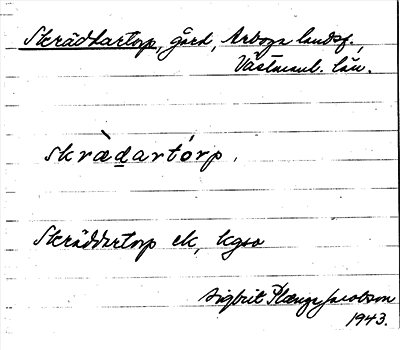 Skräddartorp, gård, Arboga landsf.,
Västmanl. län.
skrὰḏartórp.
Skräddartorp ek, kgso
Sigbrit Plænge Jacobson
1943.